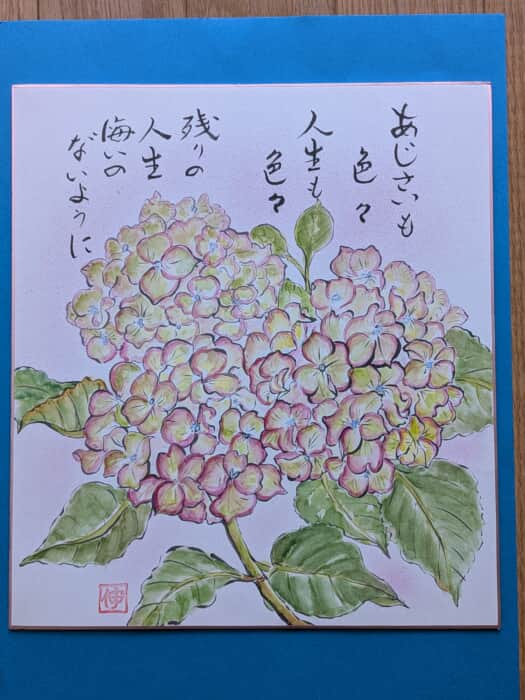 あじさいも
色々
人生も
色々
残りの
人生
悔いの
ないように
伸